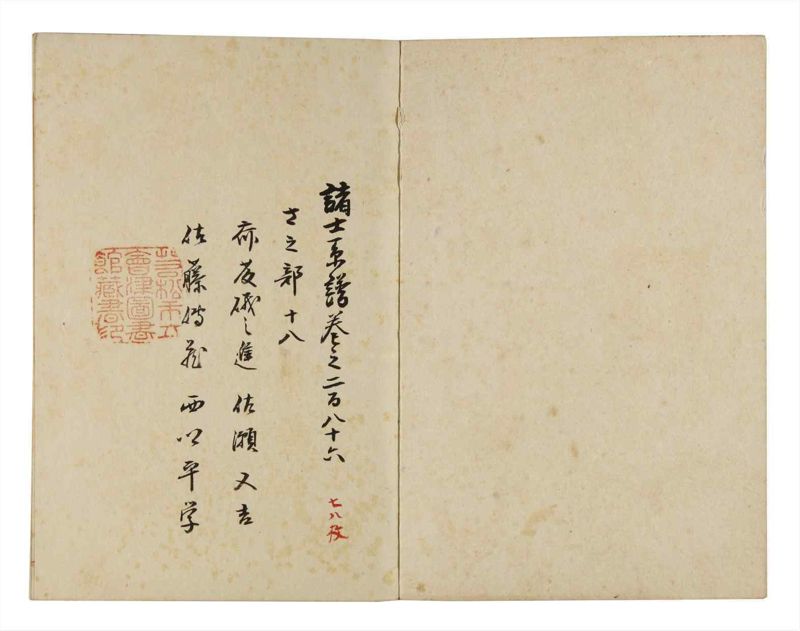 諸士系譜巻之二百八十六
七八枚
さ之部 十八
佐瀬又吉
佐藤
平学
若松市立
會津圖書
館藏書印